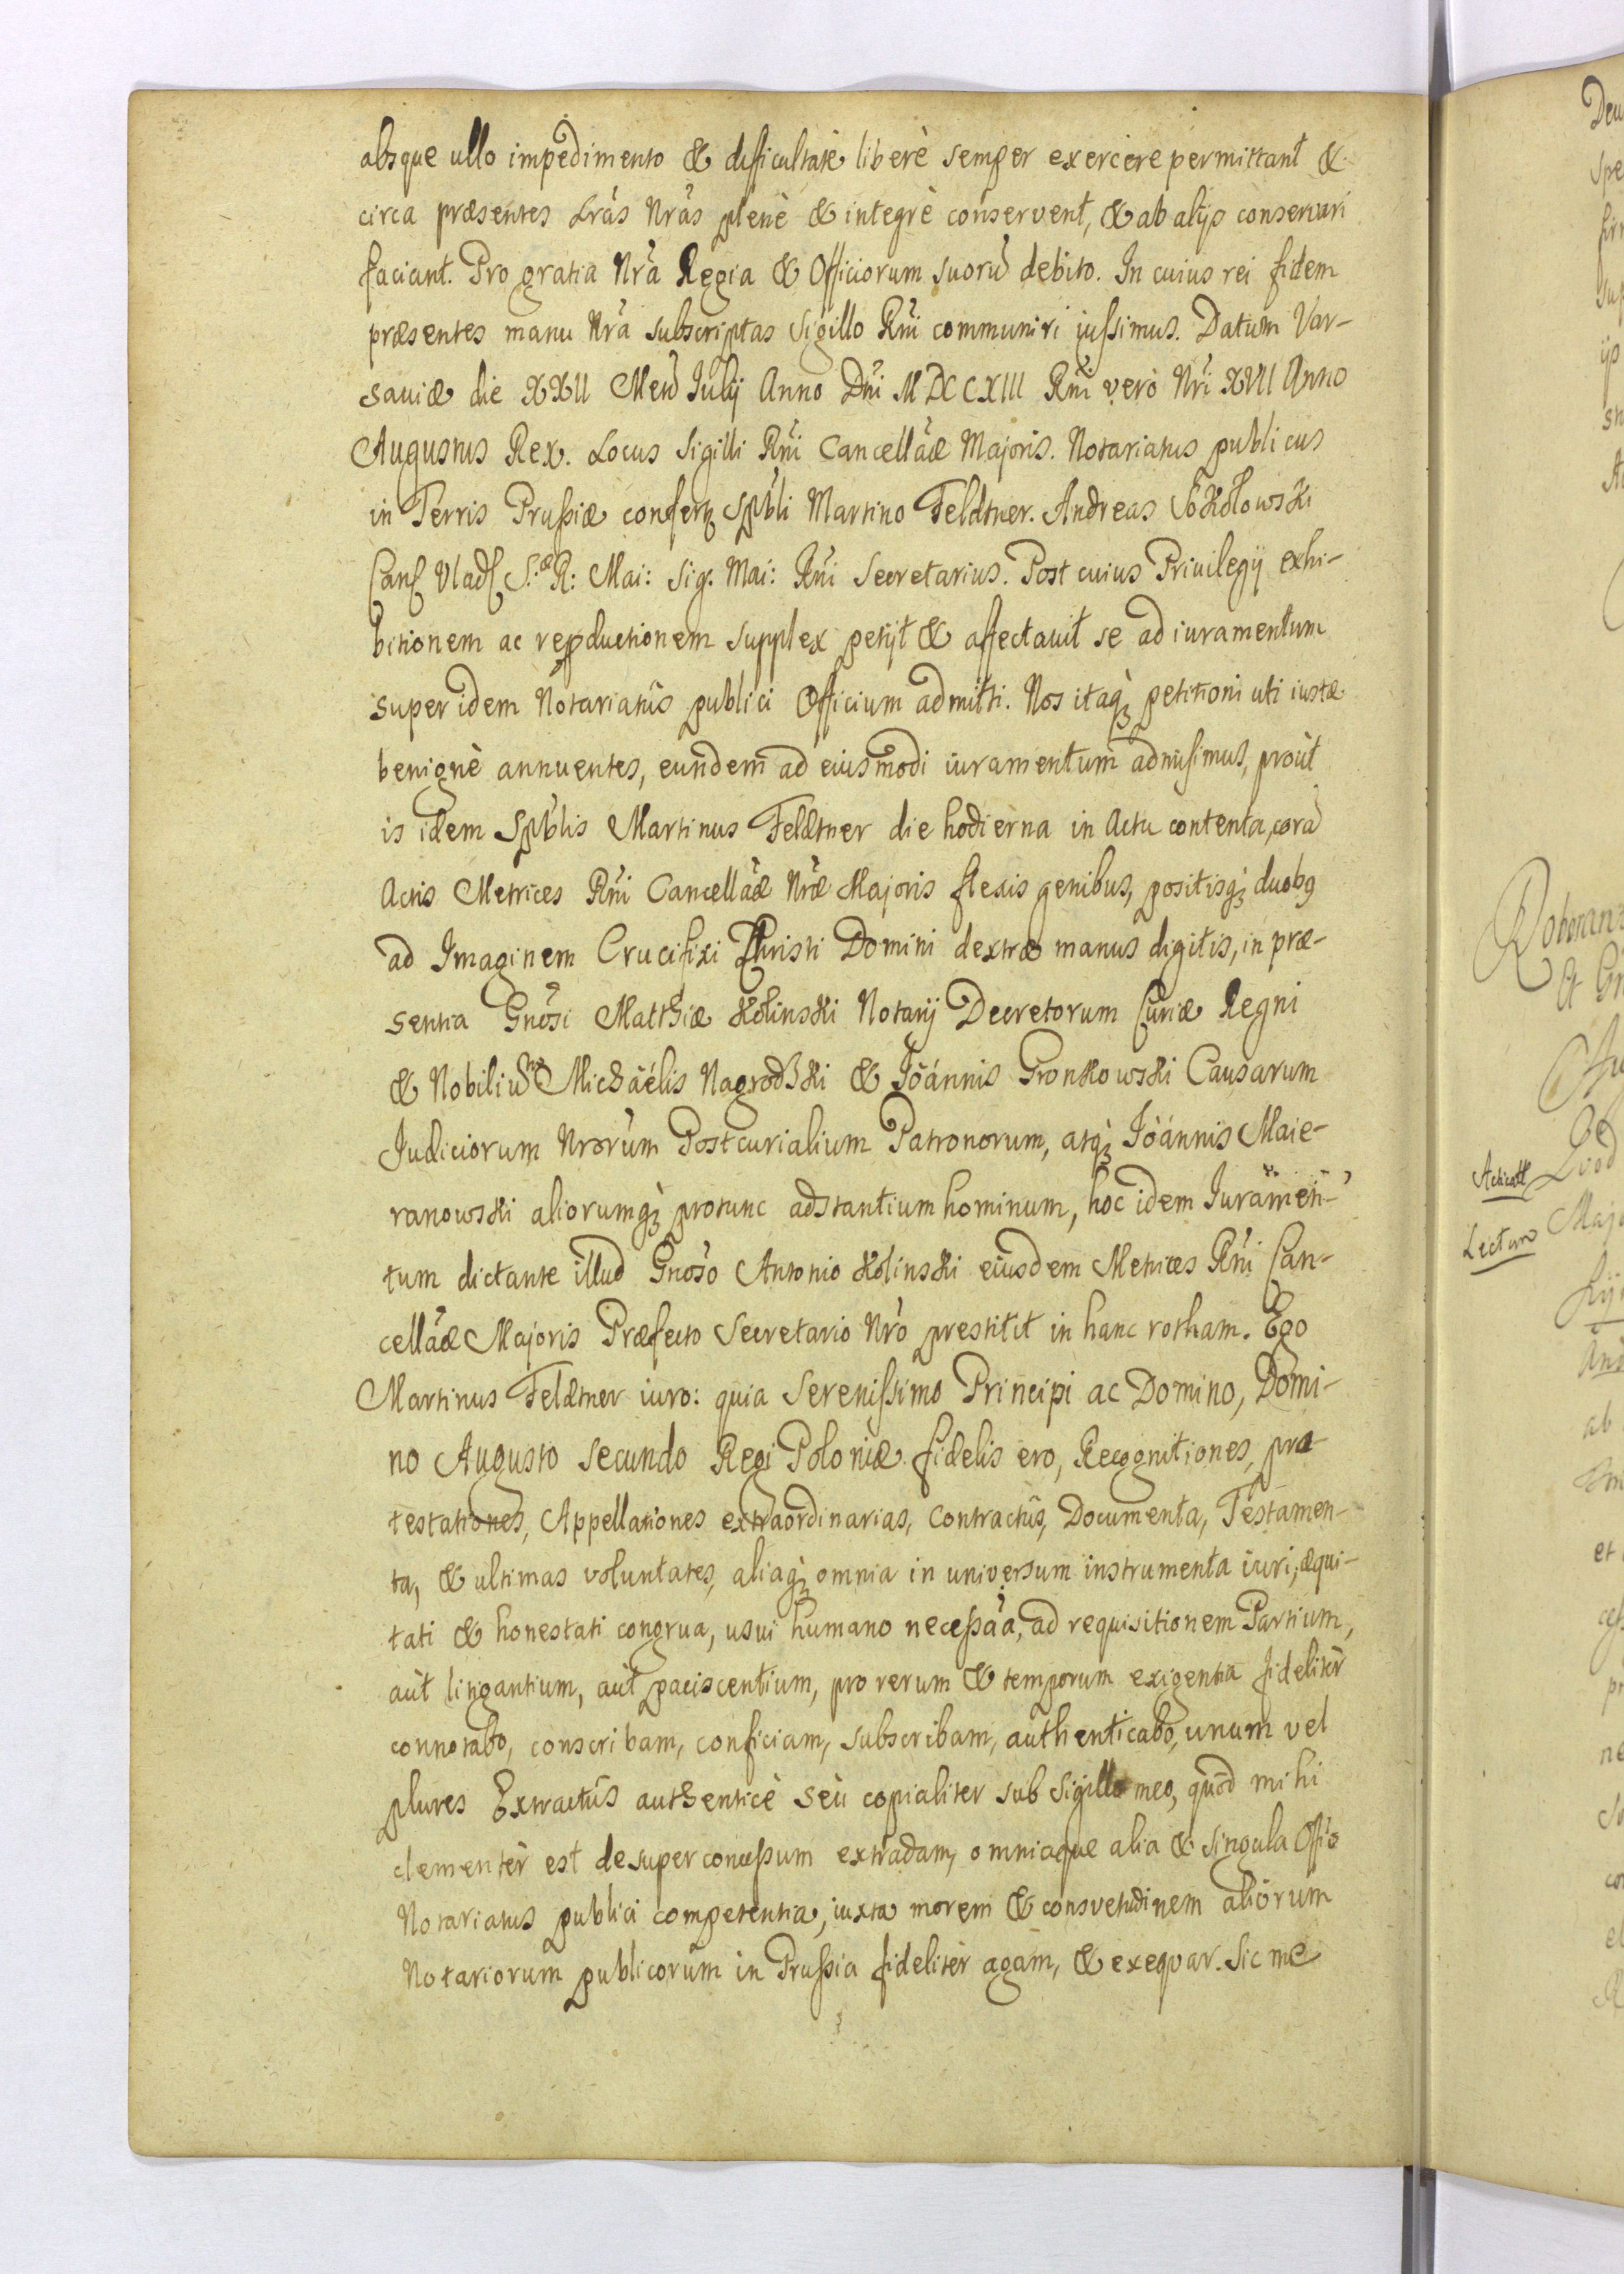 absque ullo impedimento & difficultate liberè semper exercere permittant &
circa præsentes Lrãs Nrãs plenè & integrè conservent, & ab alijs conservari
faciant. Pro gratia Nrã Regia & Officiorum suorũ debito. In cuius rei fidem
præsentes manu Nrã subscriptas Sigillo Rñi communiri iussimus. Datum Var-
saviæ die XXII Men Julij Anno Dñi MDCCXIII Rñi verò Nri XVII Anno
Augustus Rex. Locus Sigilli Rñi Cancellãæ Majoris. Notariatus publicus
in Terris Prussiæ confertꝫ Spbli Martino Feldtner. Andreas Sokołowski
S: R: Mai: Sig: Mai: Rñi Secretarius. Post cuius Privilegij exhi-
bitionem ac repductionem supplex petijt & affectavit se ad iuramentum
super idem Notariatûs publici Officium admitti. Nos itaqꝫ petitioni uti iustæ
benignè annuentes, eundem ad eiusmodi iuramentum admisimus, proùt
is idem Spblis Martinus Feldtner die hodierna in Actu contenta, corã
Actis Metrices Rñi Cancellãæ Nræ Majoris flexis genibus, positisqꝫ duobꝯ
ad Imaginem Crucifixi Christi Domini dextræ manus digitis, in præ-
sentia Gnõsi Matthiæ Kolinski Notarij Decretorum Curiæ Regni
& Nobiliũ Michaëlis Nagrodzki & Joánnis Gronkowski Causarum
Judiciorum Nrorum Postcurialium Patronorum, atqꝫ Joánnis Maie-
ranowski aliorumqꝫ protunc adstantium hominum, hoc idem Juramen-
tum dictante illud Gnõso Antonio Kolinski eiusdem Metrices Rñi Can-
cellãæ Majoris Præfecto Secretario Nrõ prestitit in hanc rotham. Ego
Martinus Feldtner iuro: quia Serenissimo Principi ac Domino, Domi-
no Augusto Secundo Regi Poloniæ fidelis ero, Recognitiones, pro-
testationes, Appellationes extraordinarias, Contractûs, Documenta, Testamen-
ta, & ultimas voluntates, aliaqꝫ omnia in universum instrumenta iuri, æqui-
tati & honestati congrua, usui humano necessãa, ad requisitionem Partium,
aùt litigantium, aùt paciscentium, pro rerum & temporum exigentia fidelitèr
connotabo, conscribam, conficiam, subscribam, authenticabo, unum vel
plures Extractûs authenticè seù copialiter sub Sigillo meo, quòd mihi
clementèr est desuper concessum extradam, omniaque alia & singula Offio
Notariatus publici competentia, iuxta morem & consvetudinem aliorum
Notariorum publicorum in Prussia fidelitèr agam, & exequar. Sic me
Acticatt
Lectum